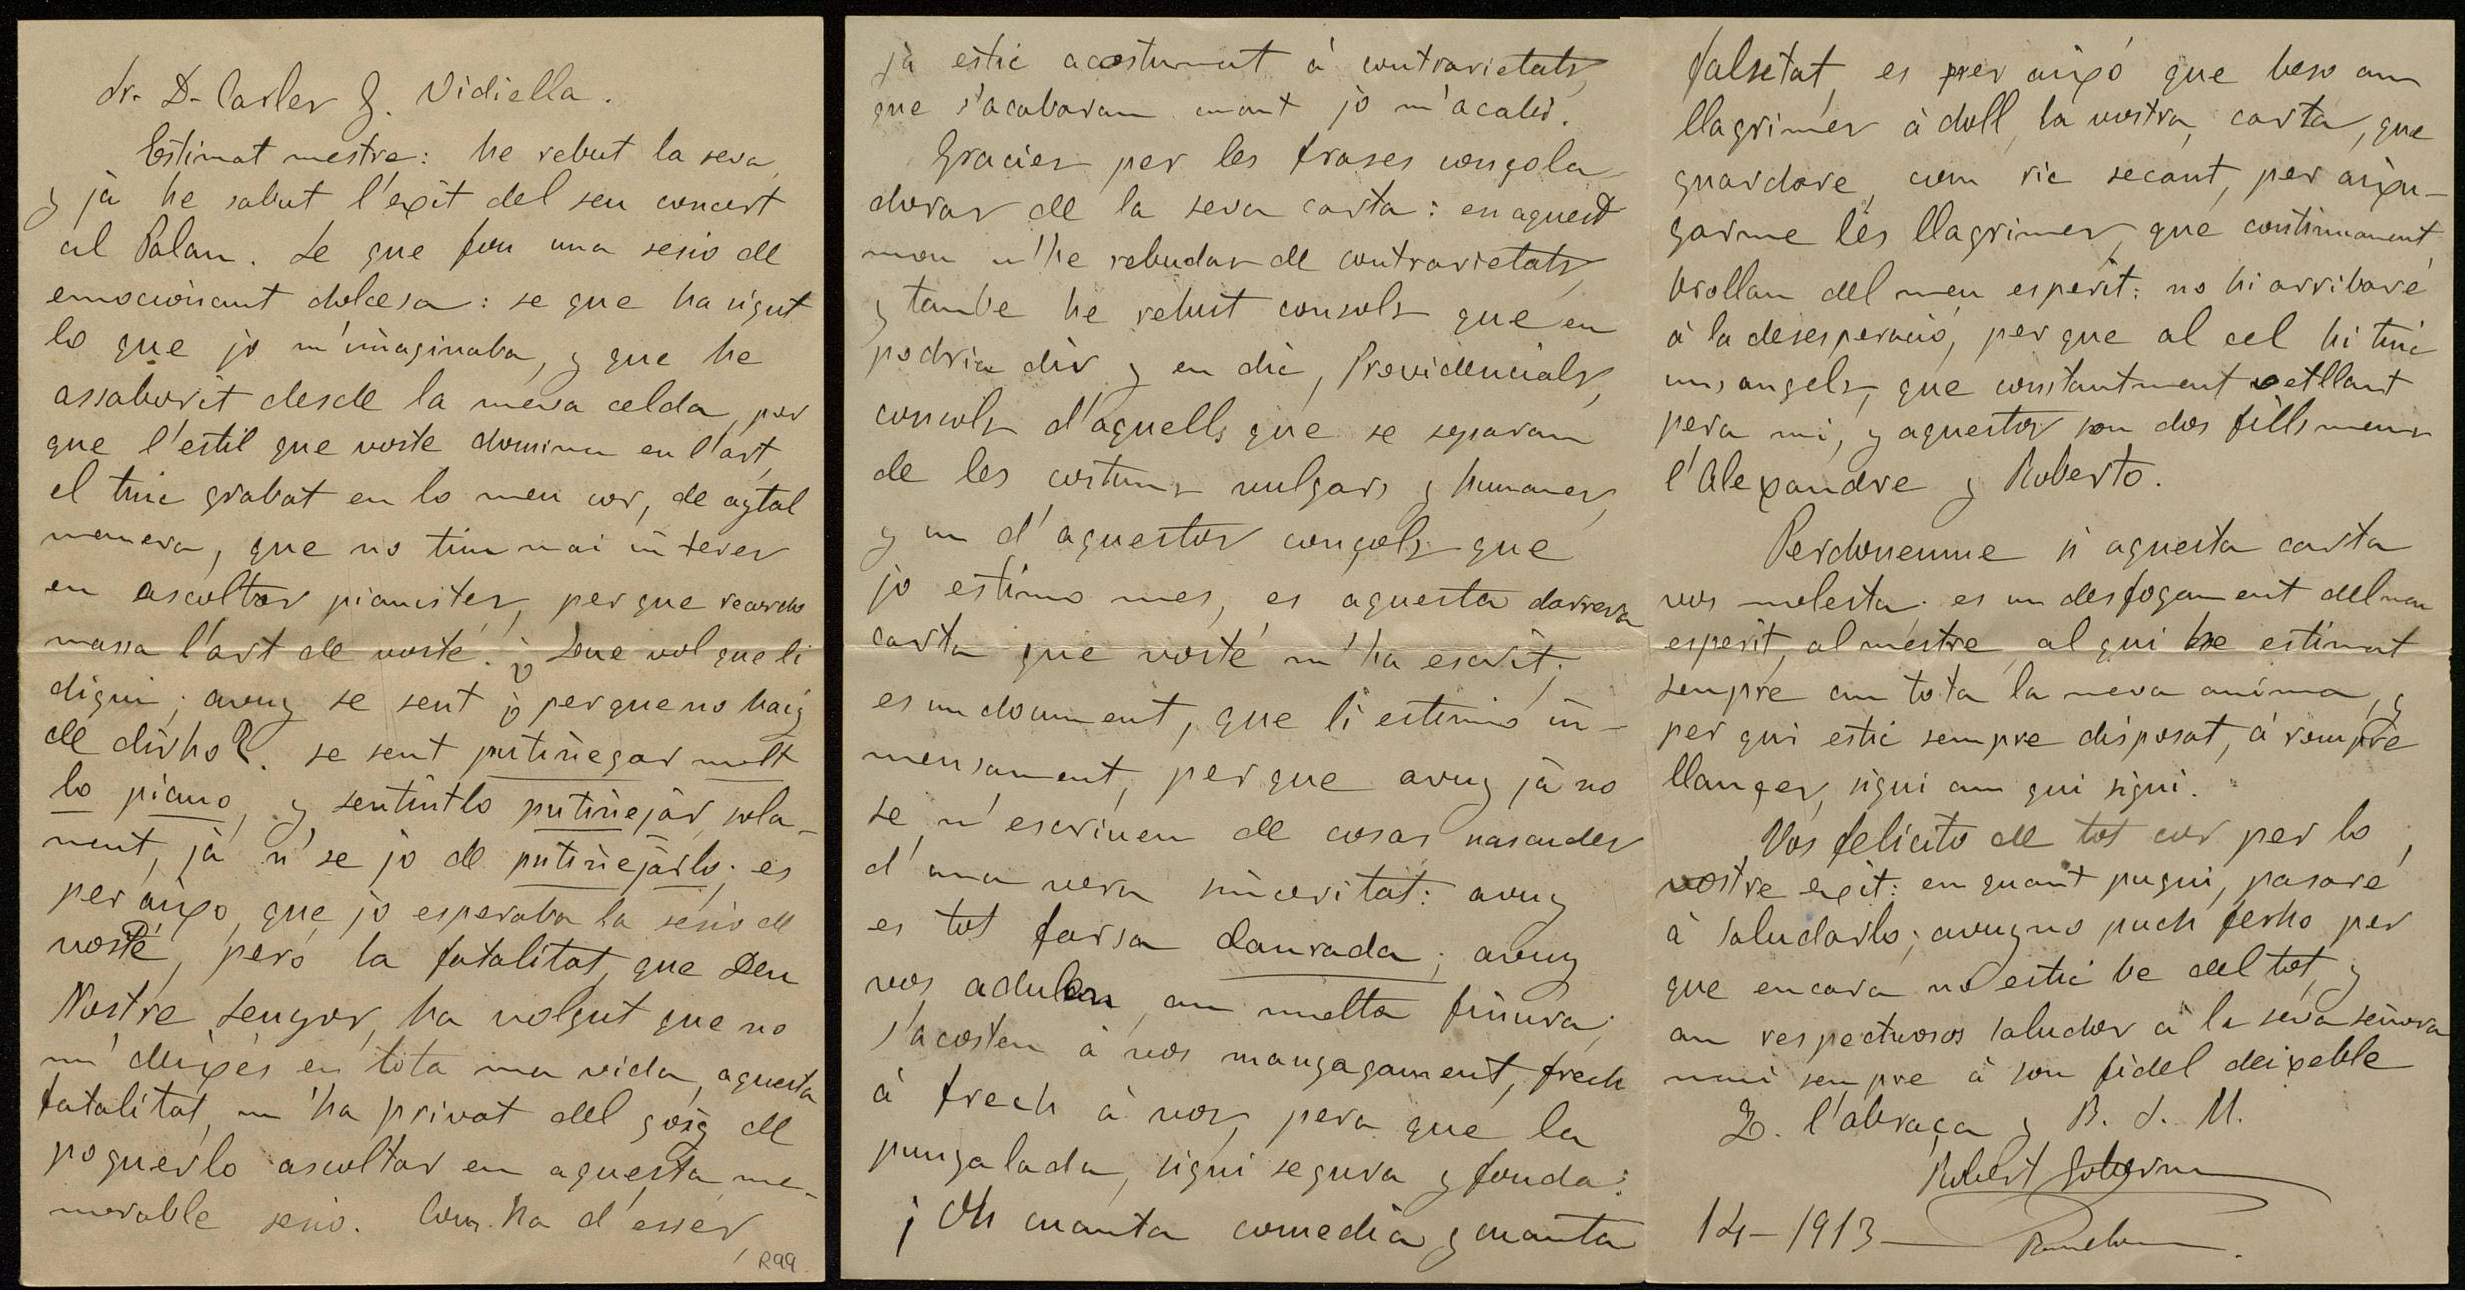 Sr. D. Carles G. Vidiella.
Estimat mestre: he rebut la seva
y jà he sabut l'exit del seu concert
al Palau. Se que fou una sesio de
emocionant dolcesa: se que ha sigut
lo que jo m'imaginaba, y que he
assaborit desde la meva celda, per
que l'estil que voste domina en l'art,
el tinc grabat en lo meu cor, de aytal
manera, que no tinc mai interes
en ascoltar pianistes, per que recordo
massa l'art de vosté. ¿Que vol que li
digui; avuy se sent ¿per que no haig
de dirho?. se sent putiñegar molt
lo piano, y sentintlo putiñejàr, sola-
ment, jà n'se jo de putiñejàrlo; es
per aixo, que jo esperaba la sesio de
vosté, peró la fatalitat, que Deu
Nostre Senyor, ha volgut que no
m'deixés en tota ma vida, aquesta
fatalitat, m'ha privat del goig de
poguerlo ascoltar en aquesta me-
morable sesio. Com ha d'esser,
R99
jà estic acostumat á contrarietats,
que s'acabaran cuant jo m'acabi.
Gracies per les frases conçola-
doras de la seva carta: en aquest
mon n'he rebudas de contrarietats,
y tambe he rebut consols que en
podria dir y en dic, Providencials,
consols d'aquells que se separan
de les costums vulgars y humanes,
y un d'aquestos conçols que
jo estimo mes, es aquesta darrera
carta que vosté m'ha escrit;
es un document, que li estimo in-
mensament, per que avuy jà no
se m'escriuen de cosas nascudes
d'una vera sinceritat: avuy
es tot farsa daurada; avuy
vos adulan, am molta finura;
s'acosten à vos mansagament, frech
à frech à vos, pera que la
punyalada, sigui segura y fonda:
¡Oh cuanta comedia y cuanta
falsetat, es per aixó que beso am
llagrimes à doll, la vostra carta, que
guardare, com ric secant, per aixu-
garme les llagrimes, que continuament
brollan del meu esperit: no hi arribaré
à la desesperació, per que al cel hi tinc
uns angels, que constantment vetllant
pera mi, y aquestos son dos fills meus
l'Alexandre y Roberto.
Perdoneume si aquesta carta
vos molesta; es un desfogament del meu
esperit, al mestre, al qui he estimat
sempre am tota la meva anima, y
per qui estic sempre disposat, á rompre
llançes, sigui am qui sigui.
Vos felicito de tot cor per lo
vostre exit: en quant pugui, pasaré
à saludarlo; avuy no puch ferho per
que encara no estic be del tot, y
am respectuosos saludos à la seva señora
mani sempre à son fidel deixeble
Q. l'abraça y B. S. M.
Robert Goberna
14-1913-